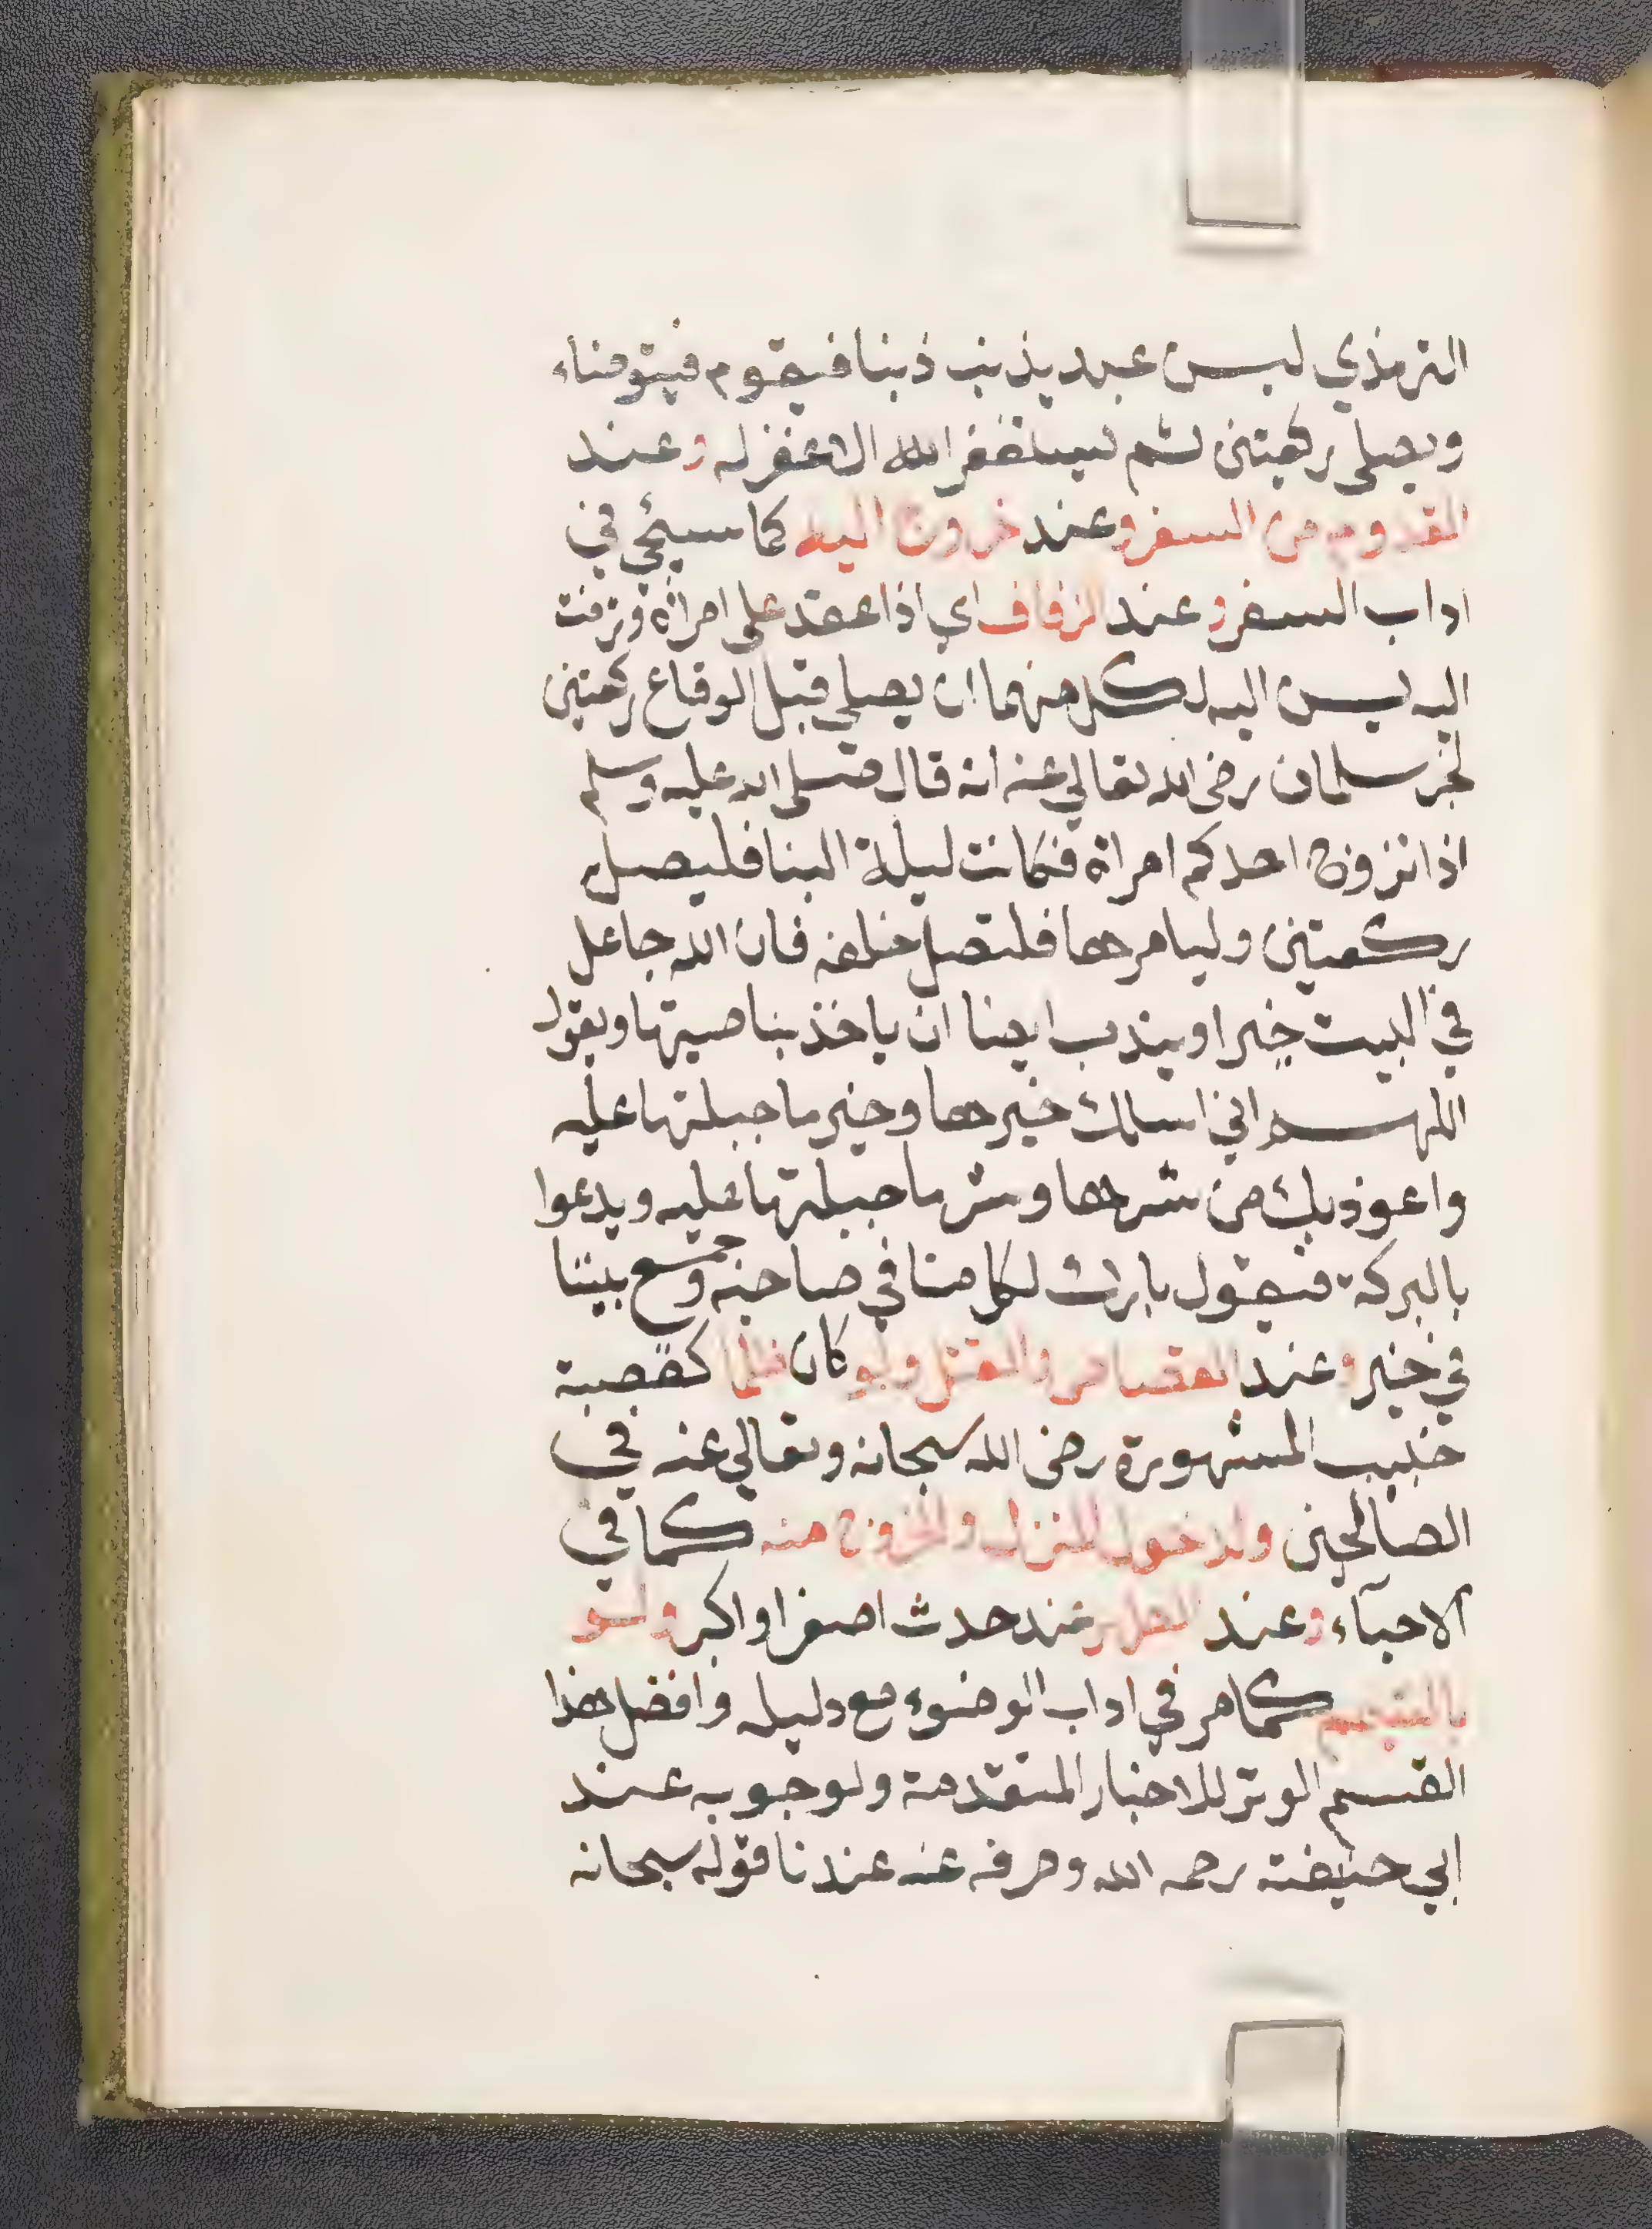 الترمذي ليس عبد يذنب ذنبا فيقوم فيتوضاء
ويصلي ركعتين ثم ليستغفر الله الا غفر له وعند
القدوم من السفر وعند خروج اليه كما سيجي في
اداب السفر وعند الزفاف اي اذا عقد على امراة وزفت
اليه ليسن اليه لكل منهما ان يصلي قبل الوقاع ركعتين
لخبر سلمان رضى الله تعالي عنه انه قال صلى الله عليه وسلم
اذا تزوج احدكم امراة فكانت ليلة البنا فليصل
ركعتين وليامرها فلتصل خلفه فان الله جاعل
في البيت خيرا ويندب ايضا ان ياخذ بناصيتها ويقول
اللهم اني اسالك خيرها وخير ما جبلتها عليه
واعوذ بك من شرها وشر ما جبلتها عليه ويدعوا
بالبركة فيقول بارك لكل منا في صاحبه وجمع بيننا
في خير وعند القتل ولو كان ظلما كقصة
خبيب المشهورة رضى الله سبحانه وتعالي عنه في
الصالحين ولدخول المنزل والخروج منه كما في
الاحياء وعند عند حدث اصغر او اكبر ولو
بالتيمم كما مر في اداب الوضوء مع دليله وافضل هذا
القسم الوتر للاخبار المتقدمة ولوجوبه عند
ابي حنيفة رحمه الله وصرفه عنه عندنا قوله سبحانه